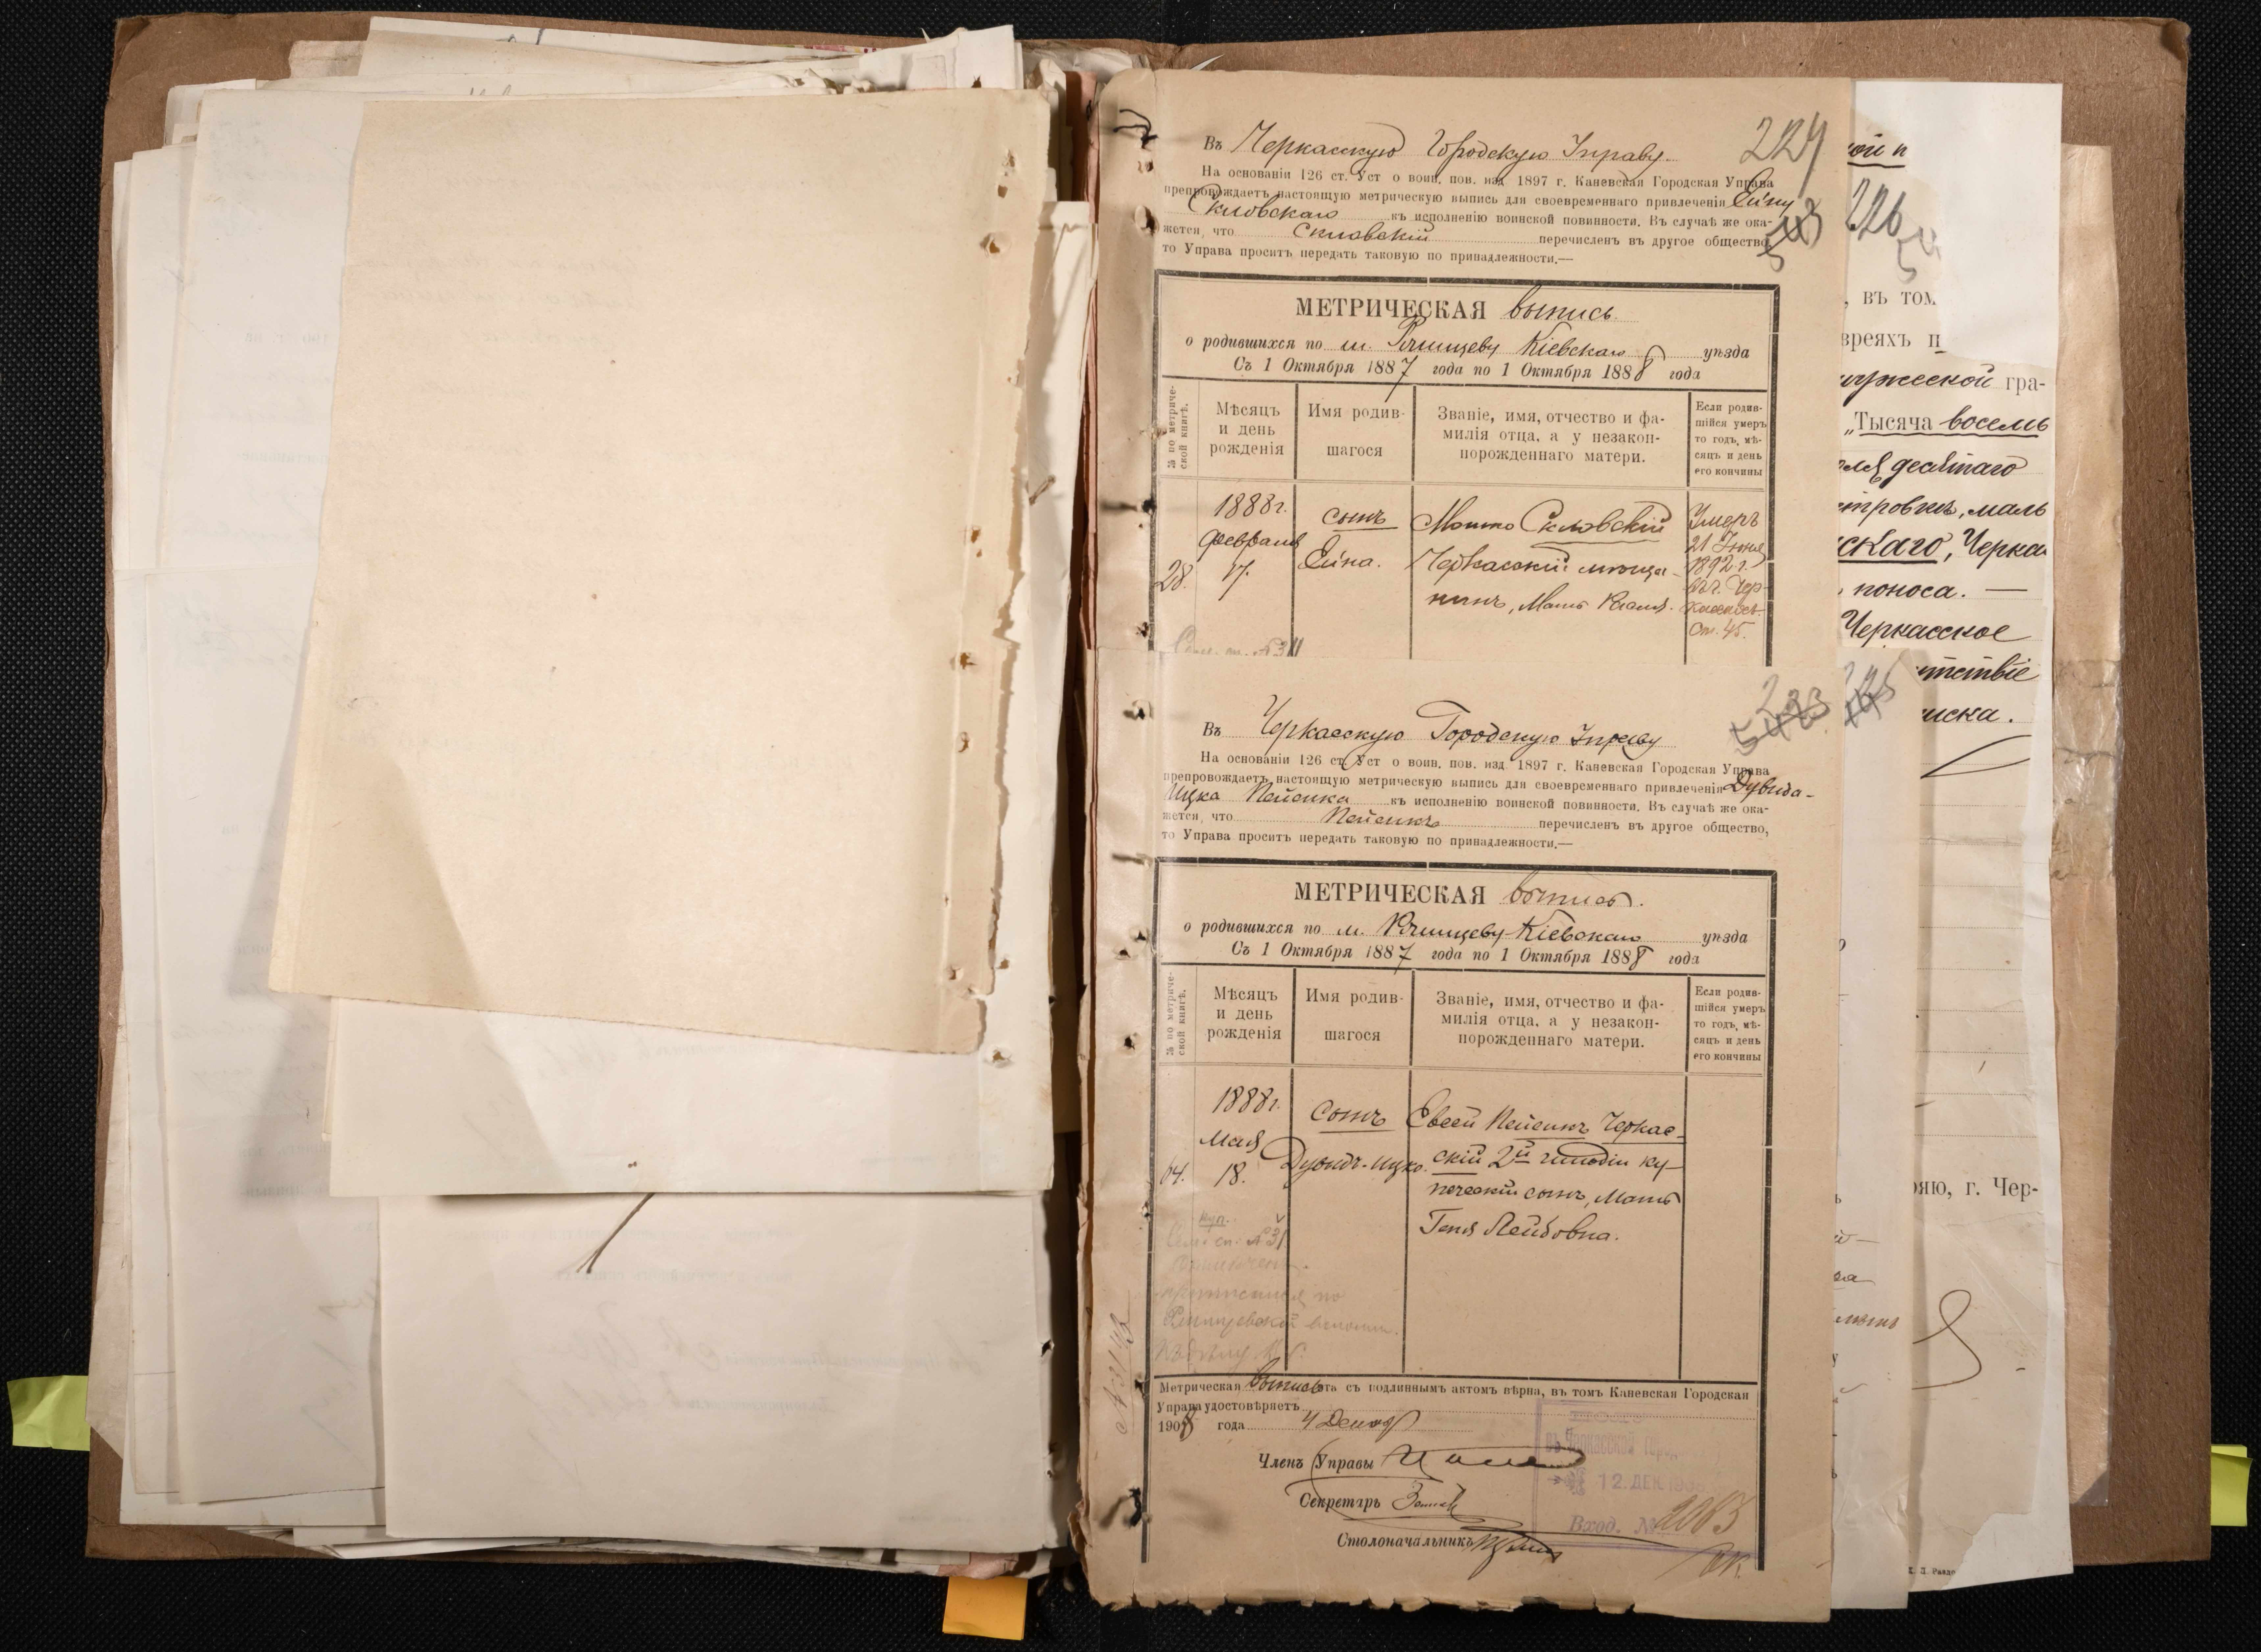 224
Въ Черкасскую Городскую Управу
На основаніи 126 ст. Уст о воин. пов. изд 1897 г. Каневская Городская Управа
препровождаетъ настоящую метрическую выпись для своевременнаго привлеченія Ейну
Скловскаго къ исполненію воинской повинности. Въ случаѣ же ока-
жется, что Скловскій перечисленъ въ другое общество,
543
то Управа проситъ передать таковую по принадлежности.—
МЕТРИЧЕСКАЯ выпись
о родившихся по м. Ржищеву Кіевскаго уѣзда
Съ 1 Октября 1887 года по 1 Октября 1888 года
№ по метриче-
ской книгѣ.
Мѣсяцъ
и день
рожденія
Имя родив-
шагося
Званіе, имя, отчество и фа-
милія отца, а у незакон-
порожденнаго матери.
Если родив-
шійся умеръ
то годъ, мѣ-
сяцъ и день
его кончины
28.
1888 г.
Февраля
17.
сынъ
Ейна.
Мошко Скловскій
Черкасскій мѣща-
нинъ, Мать
Умеръ
21 Іюня
1892 г.
въ г. Чер-
кассахъ
Ст. 45.
223
543
Въ Черкасскую Городскую Управу
На основаніи 126 ст. Уст о воин. пов. изд 1897 г. Каневская Городская Управа
препровождаетъ настоящую метрическую выпись для своевременнаго привлеченія Дувида-
Ицка Пейсика къ исполненію воинской повинности. Въ случаѣ же ока-
жется, что Пейсикъ перечисленъ въ другое общество,
то Управа проситъ передать таковую по принадлежности.—
МЕТРИЧЕСКАЯ выпись.
о родившихся по м. Ржищеву Кіевскаго уѣзда
Съ 1 Октября 1887 года по 1 Октября 1888 года
№ по метриче-
ской книгѣ.
Мѣсяцъ
и день
рожденія
Имя родив-
шагося
Званіе, имя, отчество и фа-
милія отца, а у незакон-
порожденнаго матери.
Если родив-
шійся умеръ
то годъ, мѣ-
сяцъ и день
его кончины
64.
1888 г.
Мая
18.
Сынъ
Дувидъ-Ицко.
Евсей Пейсикъ Черкас-
скій 2й гильдіи ку-
печескій сынъ, Мать
Геня Лейбовна.
куп.
Сем. сп. № 31
Метрическая выпись эта съ подлиннымъ актомъ вѣрна, въ томъ Каневская Городская
Управа удостовѣряетъ
1908 года 4 Декабр
Членъ Управы
Секретарь
Столоначальникъ
12. ДЕК. 1908
Вход. № 2063
ой п
226
, въ том
вреяхъ п
ужеской гра-
„Тысяча восемь
десятаго
скаго, Черка
поноса. —
Черкасское
тствіе
иска.
225
ряю, г. Чер-